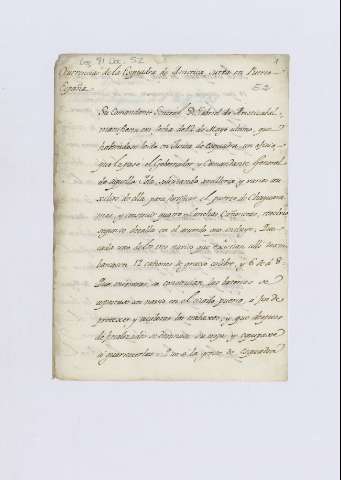 Leg. 91 Doc. 52
1
Ocurrencias de la Esquadra de America, surta en Puerto
España.
52
Su Comandante General Dn. Gabriel de Aristizabal
manifiesta en fecha de 12 de Mayo ultimo, que
habiendose leido en Junta de Esquadra, un oficio
que le paso el Governador y Comandante General
de aquella Isla, solicitando artilleria, y varios au-
xilios de ella para fortificar el puerto de Chaguara-
mas, y construir quatro Lanchas Cañoneras,
segun se detalla en el acuerdo que incluye. Que
cada uno de los tres navios que existian alli
12 cañones de grueso calibre, y 6 de à 8.
Que mientras se construian las baterias se
un navio en el citado puerto, a fin de
proteger y auxiliar los trabaxos, y que despues
de finalizadas se
a guarnecerlas la gente de Esquadra